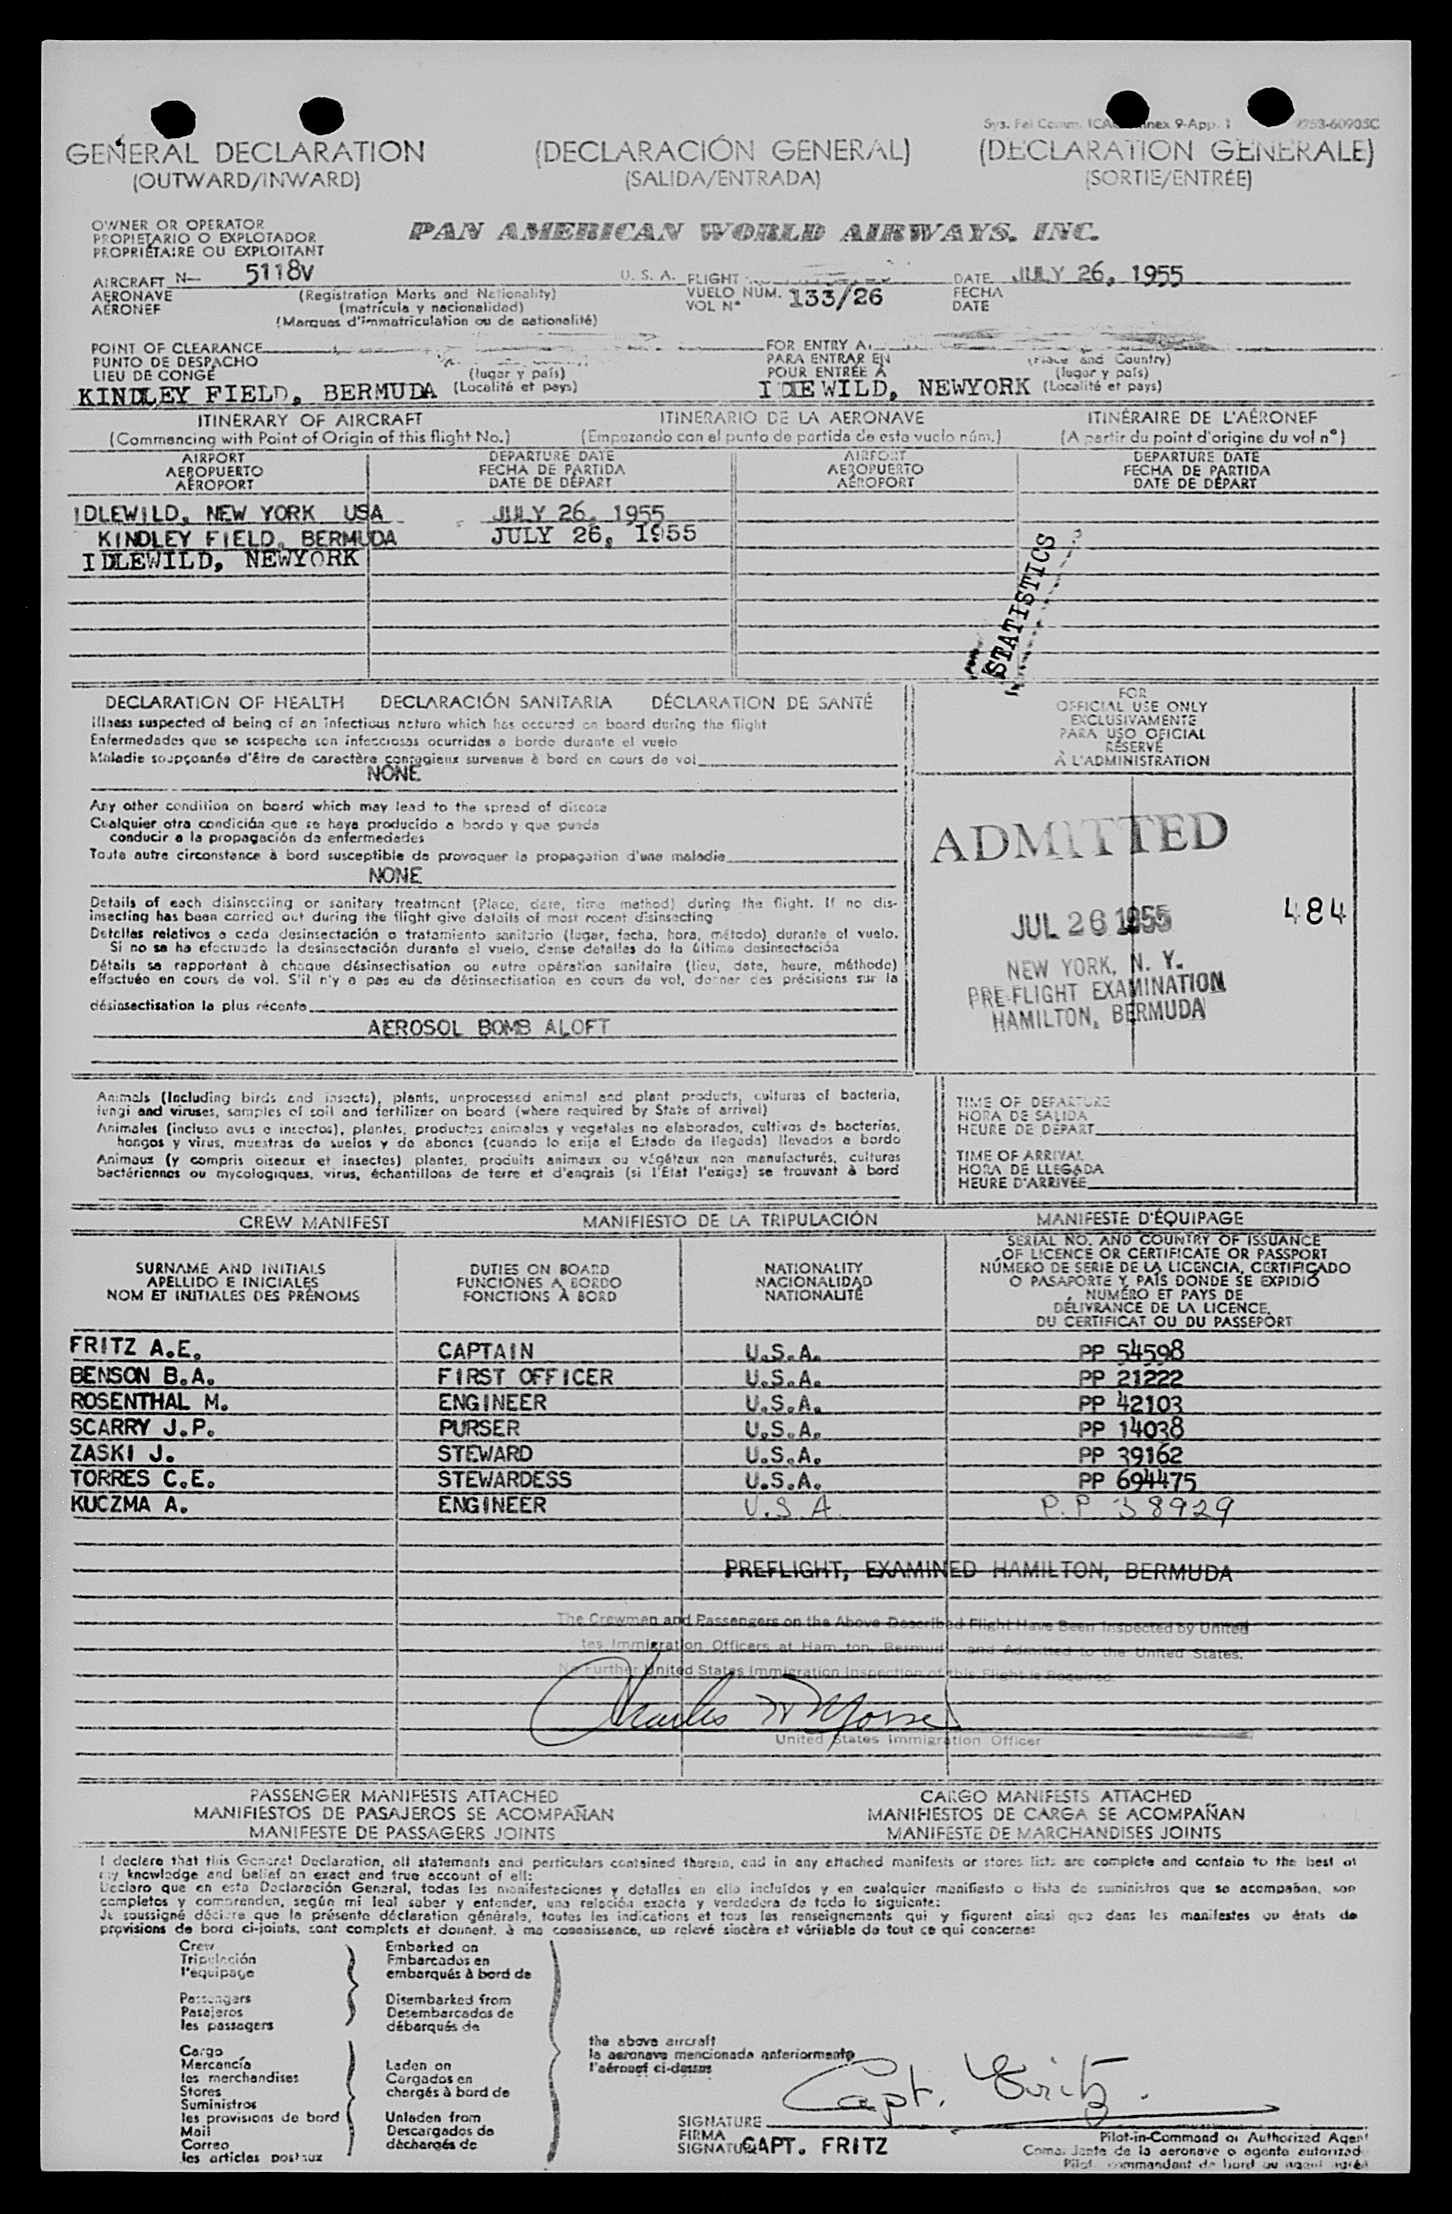 Sys. Fel Comm. ICA nnex 9-App. 1 253-60905C
GENERAL DECLARATION (DECLARACIÓN GENERAL) (DECLARATION GENERALE)
(OUTWARD/INWARD) (SALIDA/ENTRADA) (SORTIE/ENTRÉE)
OWNER OR OPERATOR
PROPIETARIO O EXPLOTADOR
PROPRIÉTAIRE OU EXPLOITANT
PAN AMERICAN WORLD AIRWAYS, INC.
AIRCRAFT N- 5118V U. S. A. FLIGHT DATE JULY 26, 1955
AERONAVE (Registration Marks and Nationality) VUELO NUM. 133/26 FECHA
AÉRONEF (matrícula y nacionalidad) VOL N° DATE
(Marques d'immatriculation ou de nationalité)
POINT OF CLEARANCE FOR ENTRY A
PUNTO DE DESPACHO PARA ENTRAR EN (Place and Country)
LIEU DE CONGÉ (lugar y país) POUR ENTRÉE A (lugar y país)
KINDLEY FIELD, BERMUDA (Localité et pays) IDLEWILD, NEWYORK (Localité et pays)
ITINERARY OF AIRCRAFT ITINERARIO DE LA AERONAVE ITINÉRAIRE DE L'AÉRONEF
(Commencing with Point of Origin of this flight No.) (Empezando con el punto de partida de este vuelo núm.) (A partir du point d'origine du vol n°)
AIRPORT DEPARTURE DATE AIRPORT DEPARTURE DATE
AEROPUERTO FECHA DE PARTIDA AEROPUERTO FECHA DE PARTIDA
AÉROPORT DATE DE DÉPART AÉROPORT DATE DE DÉPART
IDLEWILD, NEW YORK USA JULY 26, 1955
KINDLEY FIELD, BERMUDA JULY 26, 1955
IDLEWILD, NEWYORK
STATISTICS
DECLARATION OF HEALTH DECLARACIÓN SANITARIA DÉCLARATION DE SANTÉ
Illness suspected of being of an infectious nature which has occured on board during the flight
Enfermedades que se sospecha son infecciosas ocurridas a bordo durante el vuelo
Maladie soupçonnée d'être de caractère contagieux survenue à bord en cours de vol
NONE
Any other condition on board which may lead to the spread of disease
Cualquier otra condición que se haya producido a bordo y que pueda
conducir a la propagación de enfermedades
Toute autre circonstance à bord susceptible de provoquer la propagation d'une maladie
NONE
Details of each disinsecting or sanitary treatment (Place, date, time method) during the flight. If no dis-
insecting has been carried out during the flight give details of most recent disinsecting
Detalles relativos a cada desinsectación o tratamiento sanitario (lugar, fecha, hora, método) durante el vuelo.
Si no se ha efectuado la desinsectación durante el vuelo, dense detalles de la última desinsectación
Détails se rapportant à chaque désinsectisation ou autre opération sanitaire (lieu, date, heure, méthode)
effectuée en cours de vol. S'il n'y a pas eu de désinsectisation en cours de vol, donner des précisions sur la
désinsectisation la plus récente
AEROSOL BOMB ALOFT
FOR
OFFICIAL USE ONLY
EXCLUSIVAMENTE
PARA USO OFICIAL
RÉSERVÉ
À L'ADMINISTRATION
ADMITTED
JUL 26 1955 484
NEW YORK, N. Y.
PRE-FLIGHT EXAMINATION
HAMILTON, BERMUDA
Animals (Including birds and insects), plants, unprocessed animal and plant products, cultures of bacteria,
fungi and viruses, samples of soil and fertilizer on board (where required by State of arrival)
Animales (incluso aves e insectos), plantas, productos animales y vegetales no elaborados, cultivos de bacterias,
hongos y virus, muestras de suelos y de abonos (cuando lo exija el Estado de llegada) llevados a bordo
Animaux (y compris oiseaux et insectes) plantes, produits animaux ou végétaux non manufacturés, cultures
bactériennes ou mycologiques, virus, échantillons de terre et d'engrais (si l'Etat l'exige) se trouvant à bord
TIME OF DEPARTURE
HORA DE SALIDA
HEURE DE DÉPART
TIME OF ARRIVAL
HORA DE LLEGADA
HEURE D'ARRIVÉE
CREW MANIFEST MANIFIESTO DE LA TRIPULACIÓN MANIFESTE D'ÉQUIPAGE
SURNAME AND INITIALS
APELLIDO E INICIALES
NOM ET INITIALES DES PRÉNOMS
DUTIES ON BOARD
FUNCIONES A BORDO
FONCTIONS À BORD
NATIONALITY
NACIONALIDAD
NATIONALITÉ
SERIAL NO. AND COUNTRY OF ISSUANCE
OF LICENCE OR CERTIFICATE OR PASSPORT
NÚMERO DE SERIE DE LA LICENCIA, CERTIFICADO
O PASAPORTE Y PAÍS DONDE SE EXPIDIÓ
NUMÉRO ET PAYS DE
DÉLIVRANCE DE LA LICENCE,
DU CERTIFICAT OU DU PASSEPORT
FRITZ A.E. CAPTAIN U.S.A. PP 54598
BENSON B.A. FIRST OFFICER U.S.A. PP 21222
ROSENTHAL M. ENGINEER U.S.A. PP 42103
SCARRY J.P. PURSER U.S.A. PP 14038
ZASKI J. STEWARD U.S.A. PP 39162
TORRES C.E. STEWARDESS U.S.A. PP 694475
KUCZMA A. ENGINEER U.S.A. P.P 38929
PREFLIGHT, EXAMINED HAMILTON, BERMUDA
The Crewmen and Passengers on the Above Described Flight Have Been Inspected by United
tes Immigration Officers at Ham ton, Bermud and Admitted to the United States.
No Further United States Immigration Inspection of this Flight is Required.
Charles W Morse
United States Immigration Officer
PASSENGER MANIFESTS ATTACHED CARGO MANIFESTS ATTACHED
MANIFIESTOS DE PASAJEROS SE ACOMPAÑAN MANIFIESTOS DE CARGA SE ACOMPAÑAN
MANIFESTE DE PASSAGERS JOINTS MANIFESTE DE MARCHANDISES JOINTS
I declare that this General Declaration, all statements and particulars contained therein, and in any attached manifests or stores lists are complete and contain to the best of
my knowledge and belief an exact and true account of all:
Declaro que en esta Declaración General, todas las manifestaciones y detalles en ella incluídos y en cualquier manifiesto o lista de suministros que se acompañan, son
completos y comprenden, según mi leal saber y entender, una relación exacta y verdadera de todo lo siguiente:
Je soussigné déclare que la présente déclaration générale, toutes les indications et tous les renseignements qui y figurent ainsi que dans les manifestes ou états de
provisions de bord ci-joints, sont complets et donnent, à ma connaissance, un relevé sincère et véritable de tout ce qui concerne:
Crew Embarked on
Tripulación Embarcados en
l'équipage embarqués à bord de
Passengers Disembarked from
Pasajeros Desembarcados de
les passagers débarqués de
the above aircraft
la aeronave mencionada anteriormente
l'aéronef ci-dessus
Cargo
Mercancía Laden on
les marchandises Cargados en
Stores chargés à bord de
Suministros
les provisions de bord Unladen from
Mail Descargados de
Correo déchargés de
les articles postaux
Capt. Fritz.
SIGNATURE
FIRMA Pilot-in-Command or Authorized Agent
SIGNATU CAPT. FRITZ Coma dante de la aeronave o agente autorizad
Pilot commandant de bord ou agent agréé